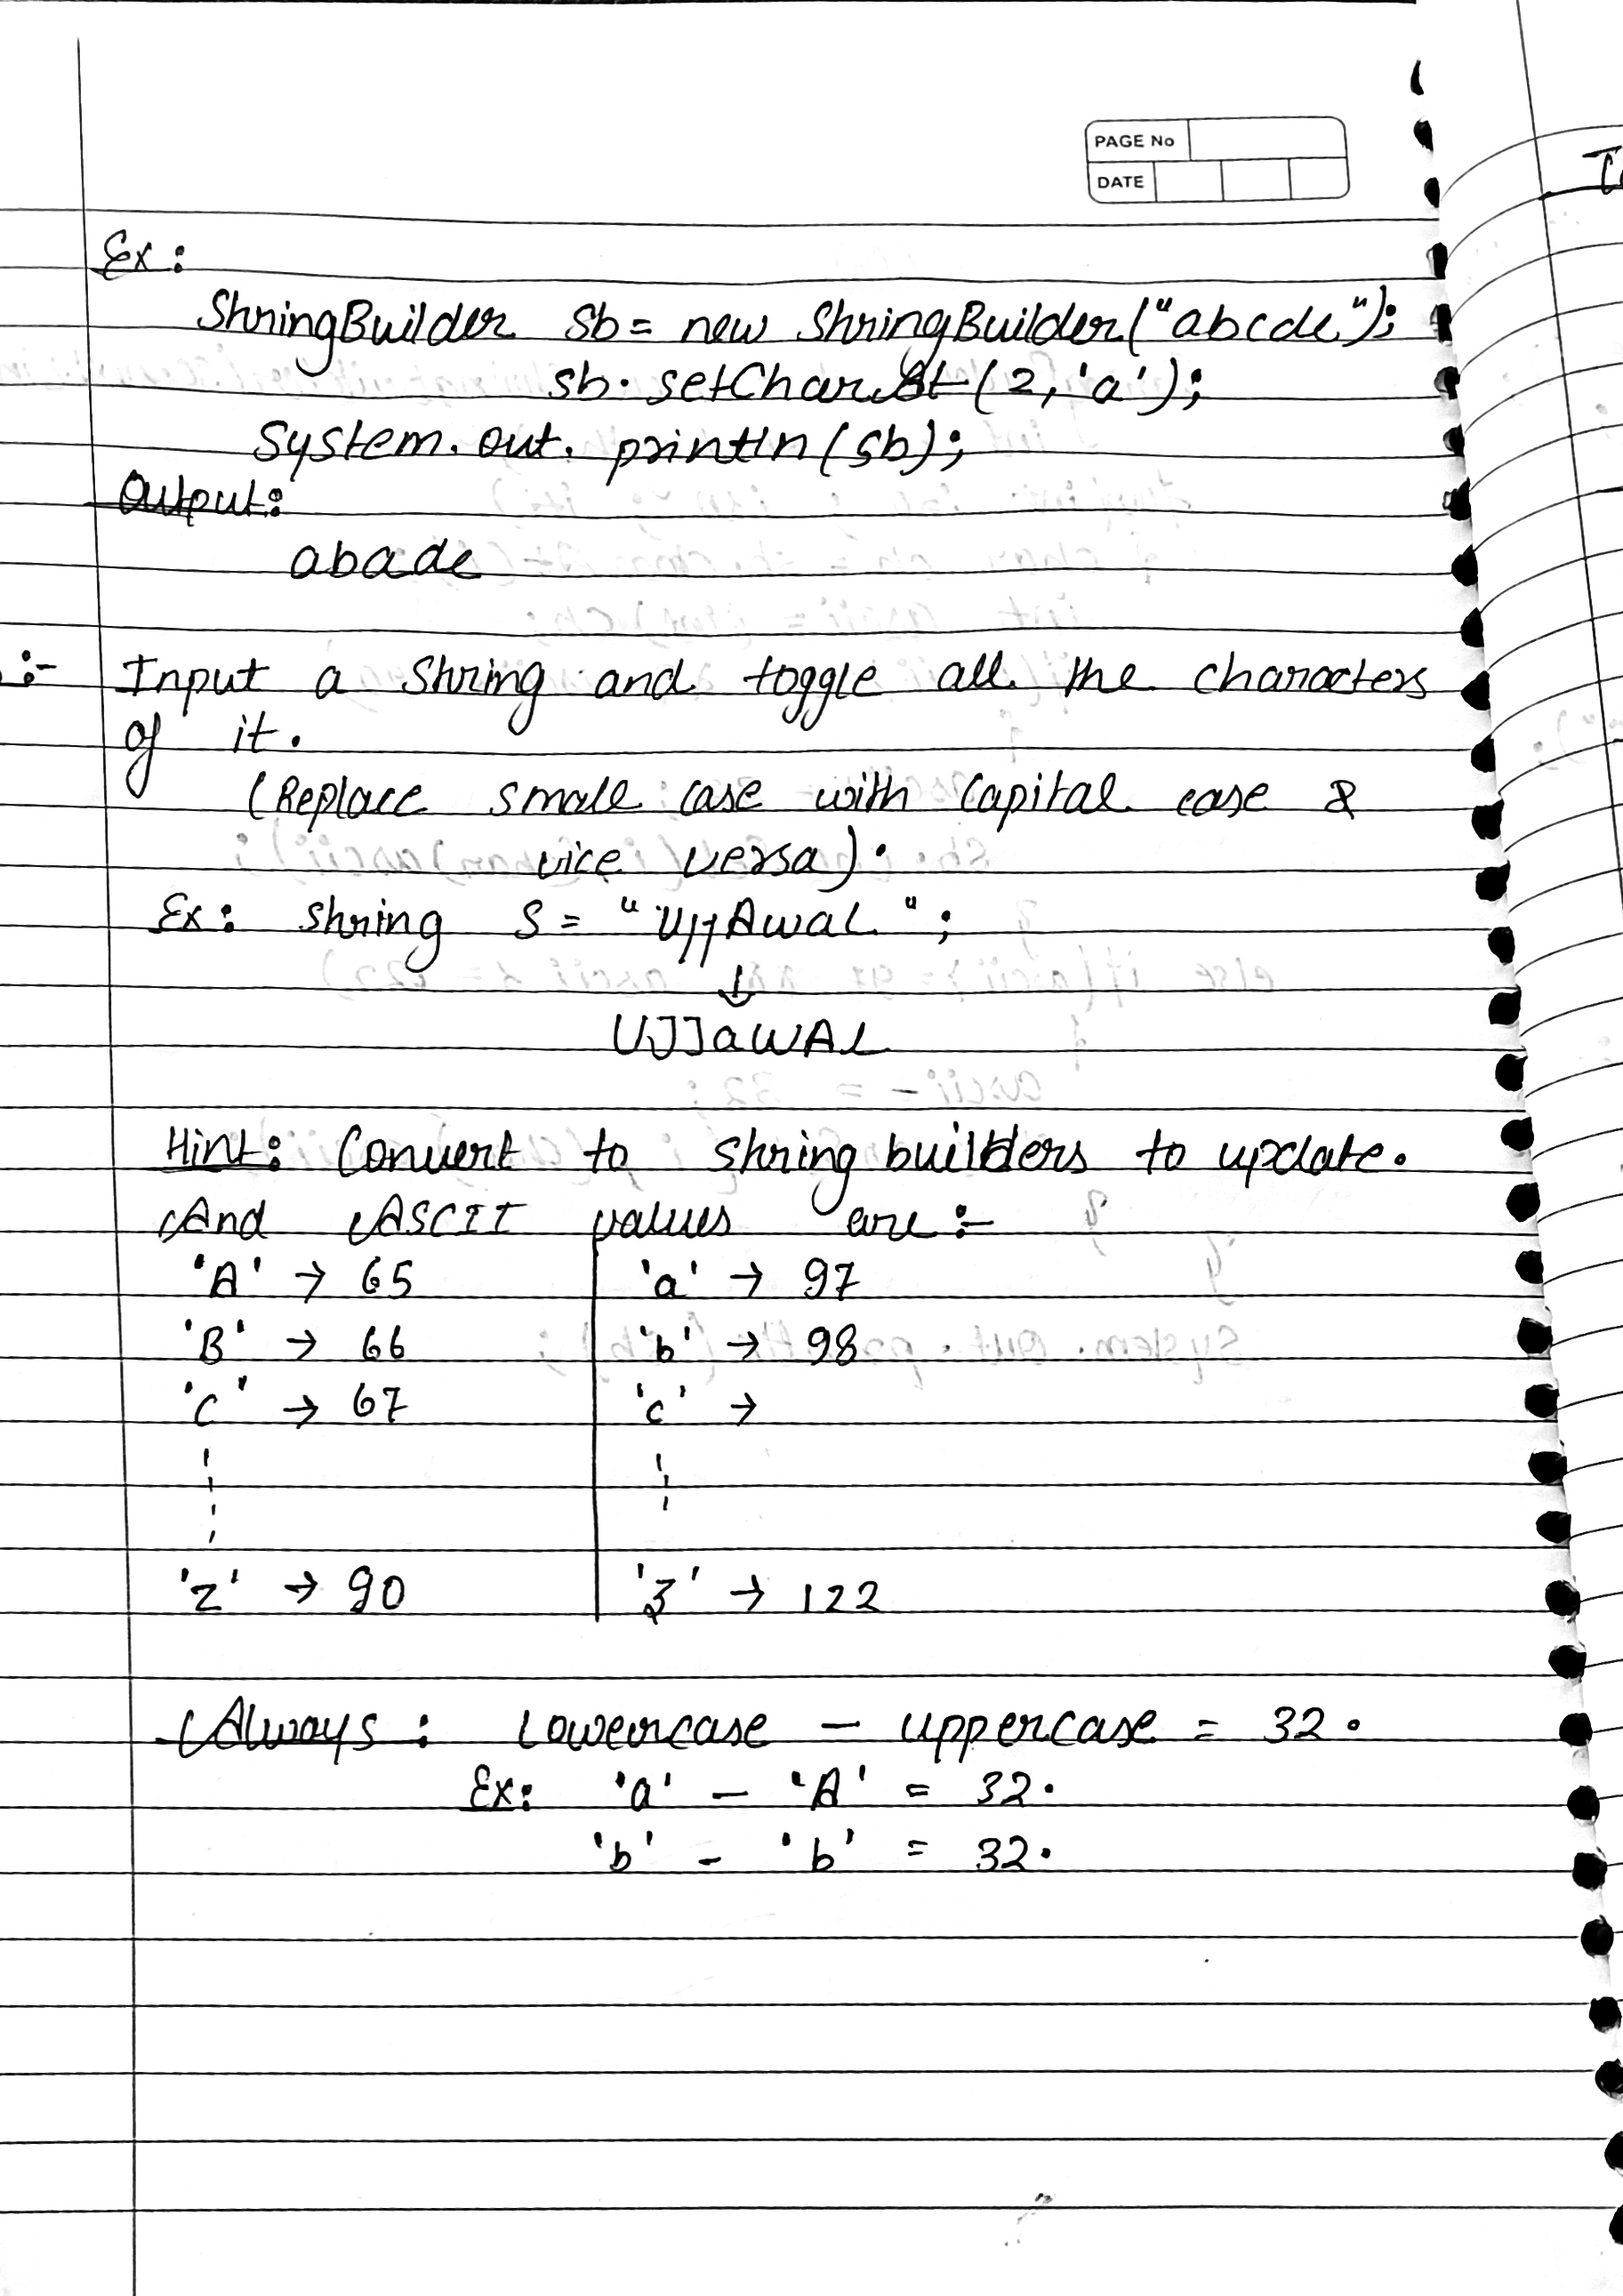 PAGE No
DATE
Ex:
StringBuilder sb = new StringBuilder("abcde");
sb. setCharAt (2, 'a');
System. out. println (sb);
Output:
abade
:- Input a String and toggle all the characters
of it.
(Replace small case with Capital case &
vice versa).
Ex: string S = "ujjAwal";
↓
UJJaWAL
Hint: Convert to string builders to update.
And ASCII values are:-
'A' → 65 'a' → 97
'B' → 66 'b' → 98
'C' → 67 'c' →
'Z' → 90 'z' → 122
Always: Lowercase - uppercase = 32.
Ex: 'a' - 'A' = 32.
'b' - 'b' = 32.